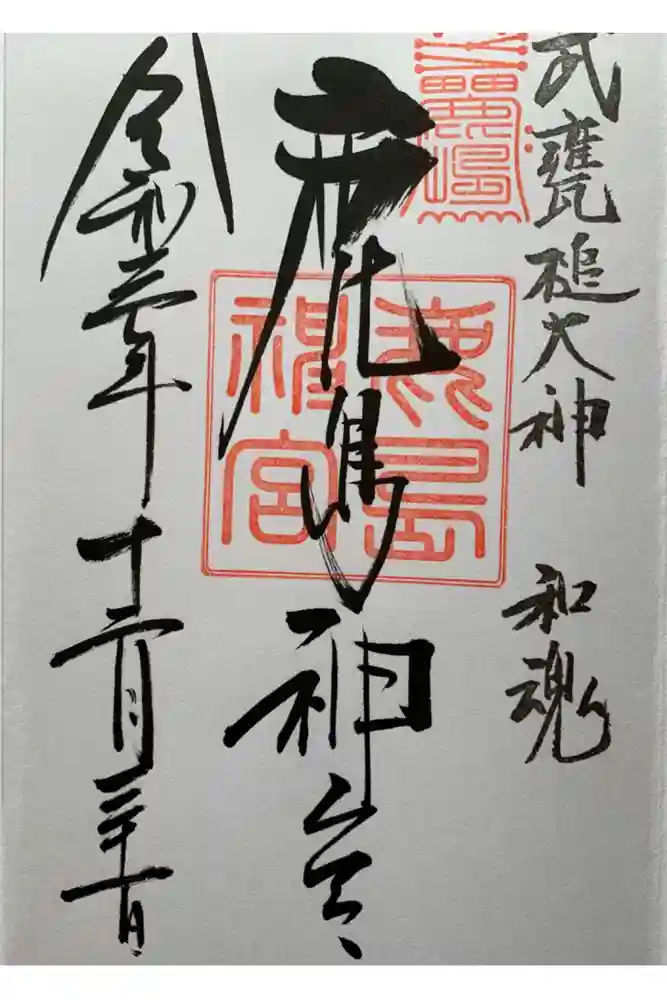 武甕槌大神 和魂
鹿嶋
鹿島神宮
鹿島神宮
令和三年十二月三十一日